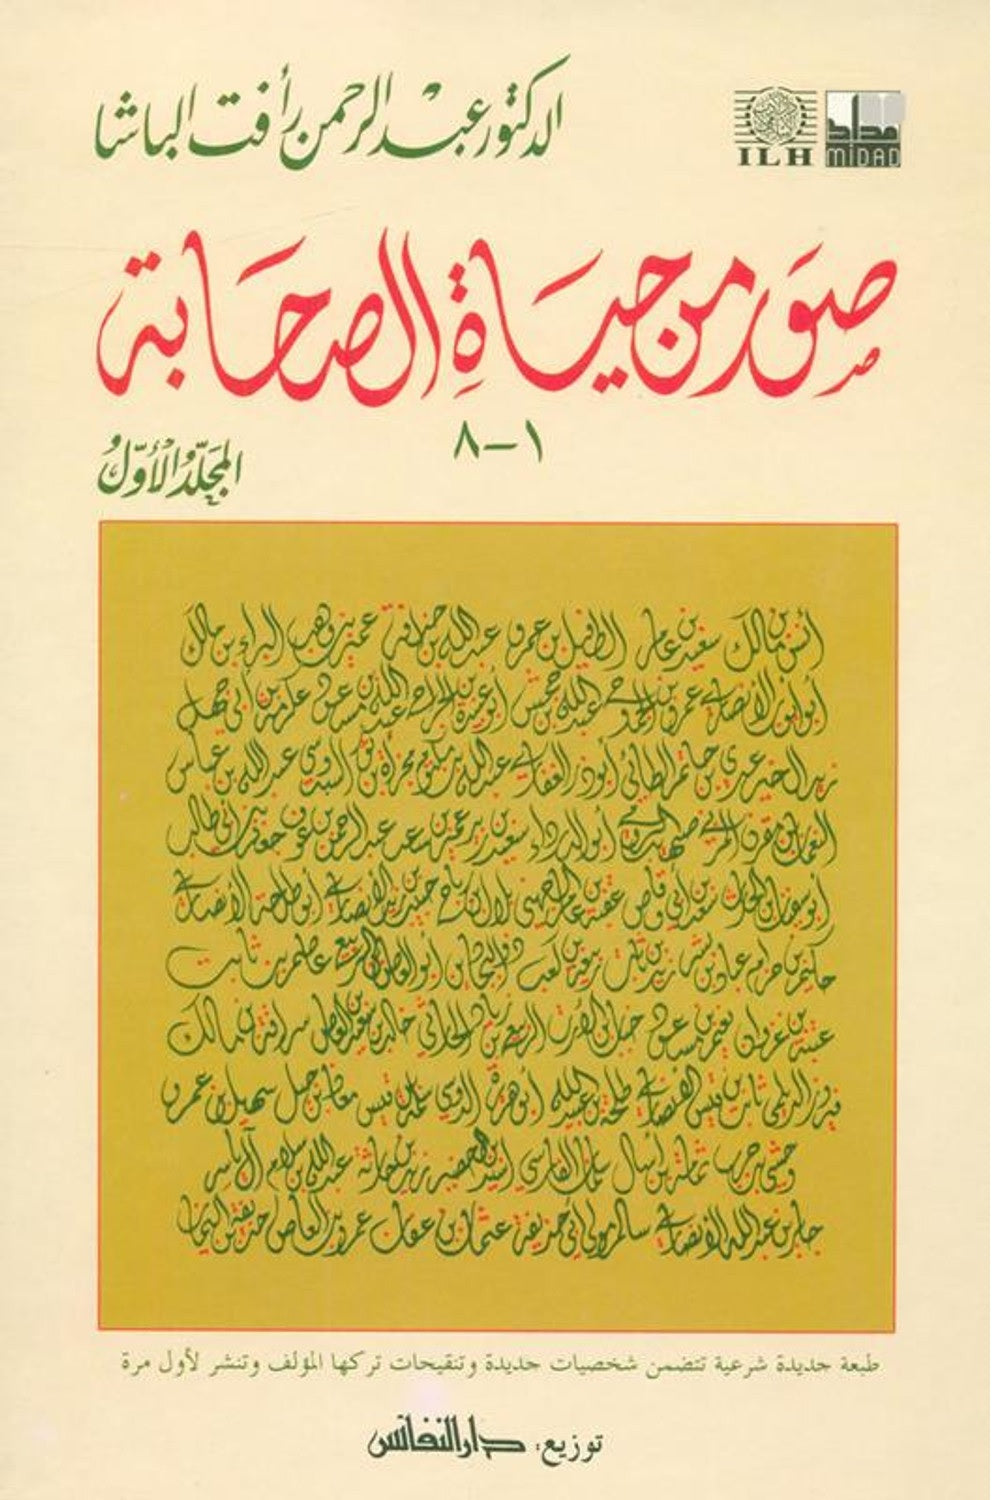 الدكتور عبد الرحمن رأفت الباشا
مداد
ILH MIDAD
صور من حياة الصحابة
١–٨
المجلد الأول
أنس بن مالك سعيد بن عامر الطفيل بن عمرو عبد الله بن حذافة عمير بن وهب البراء بن مالك
أبو أيوب الأنصاري عمرو بن الجموح عبد الله بن جحش أبو عبيدة بن الجراح عبد الله بن مسعود عكرمة بن أبي جهل
زيد الخير عدي بن حاتم الطائي أبو ذر الغفاري عبد الله بن أم مكتوم مجزأة بن ثور السدوسي عبد الله بن عباس
النعمان بن مقرن المزني صهيب الرومي أبو الدرداء سعيد بن زيد عمير بن سعد عبد الرحمن بن عوف جعفر بن أبي طالب
أبو سفيان بن الحارث سعد بن أبي وقاص عقبة بن عامر الجهني بلال بن رباح حبيب بن زيد الأنصاري أبو طلحة الأنصاري
حكيم بن حزام عباد بن بشر زيد بن ثابت ربيعة بن كعب ذو البجادين أبو العاص بن الربيع عاصم بن ثابت
عتبة بن غزوان نعيم بن مسعود خباب بن الأرت الربيع بن زياد الحارثي خالد بن سعيد بن العاص سراقة بن مالك
فيروز الديلمي ثابت بن قيس الأنصاري طلحة بن عبيد الله أبو هريرة الدوسي سلمة بن قيس معاذ بن جبل سهيل بن عمرو
وحشي بن حرب ثمامة بن أثال سلمان الفارسي أسيد بن الحضير زيد بن حارثة عبد الله بن سلام آل ياسر
جابر بن عبد الله الأنصاري سالم مولى أبي حذيفة عثمان بن عفان عمرو بن العاص حذيفة بن اليمان
طبعة جديدة شرعية تتضمن شخصيات جديدة وتنقيحات تركها المؤلف وتنشر لأول مرة
توزيع: دار النفائس